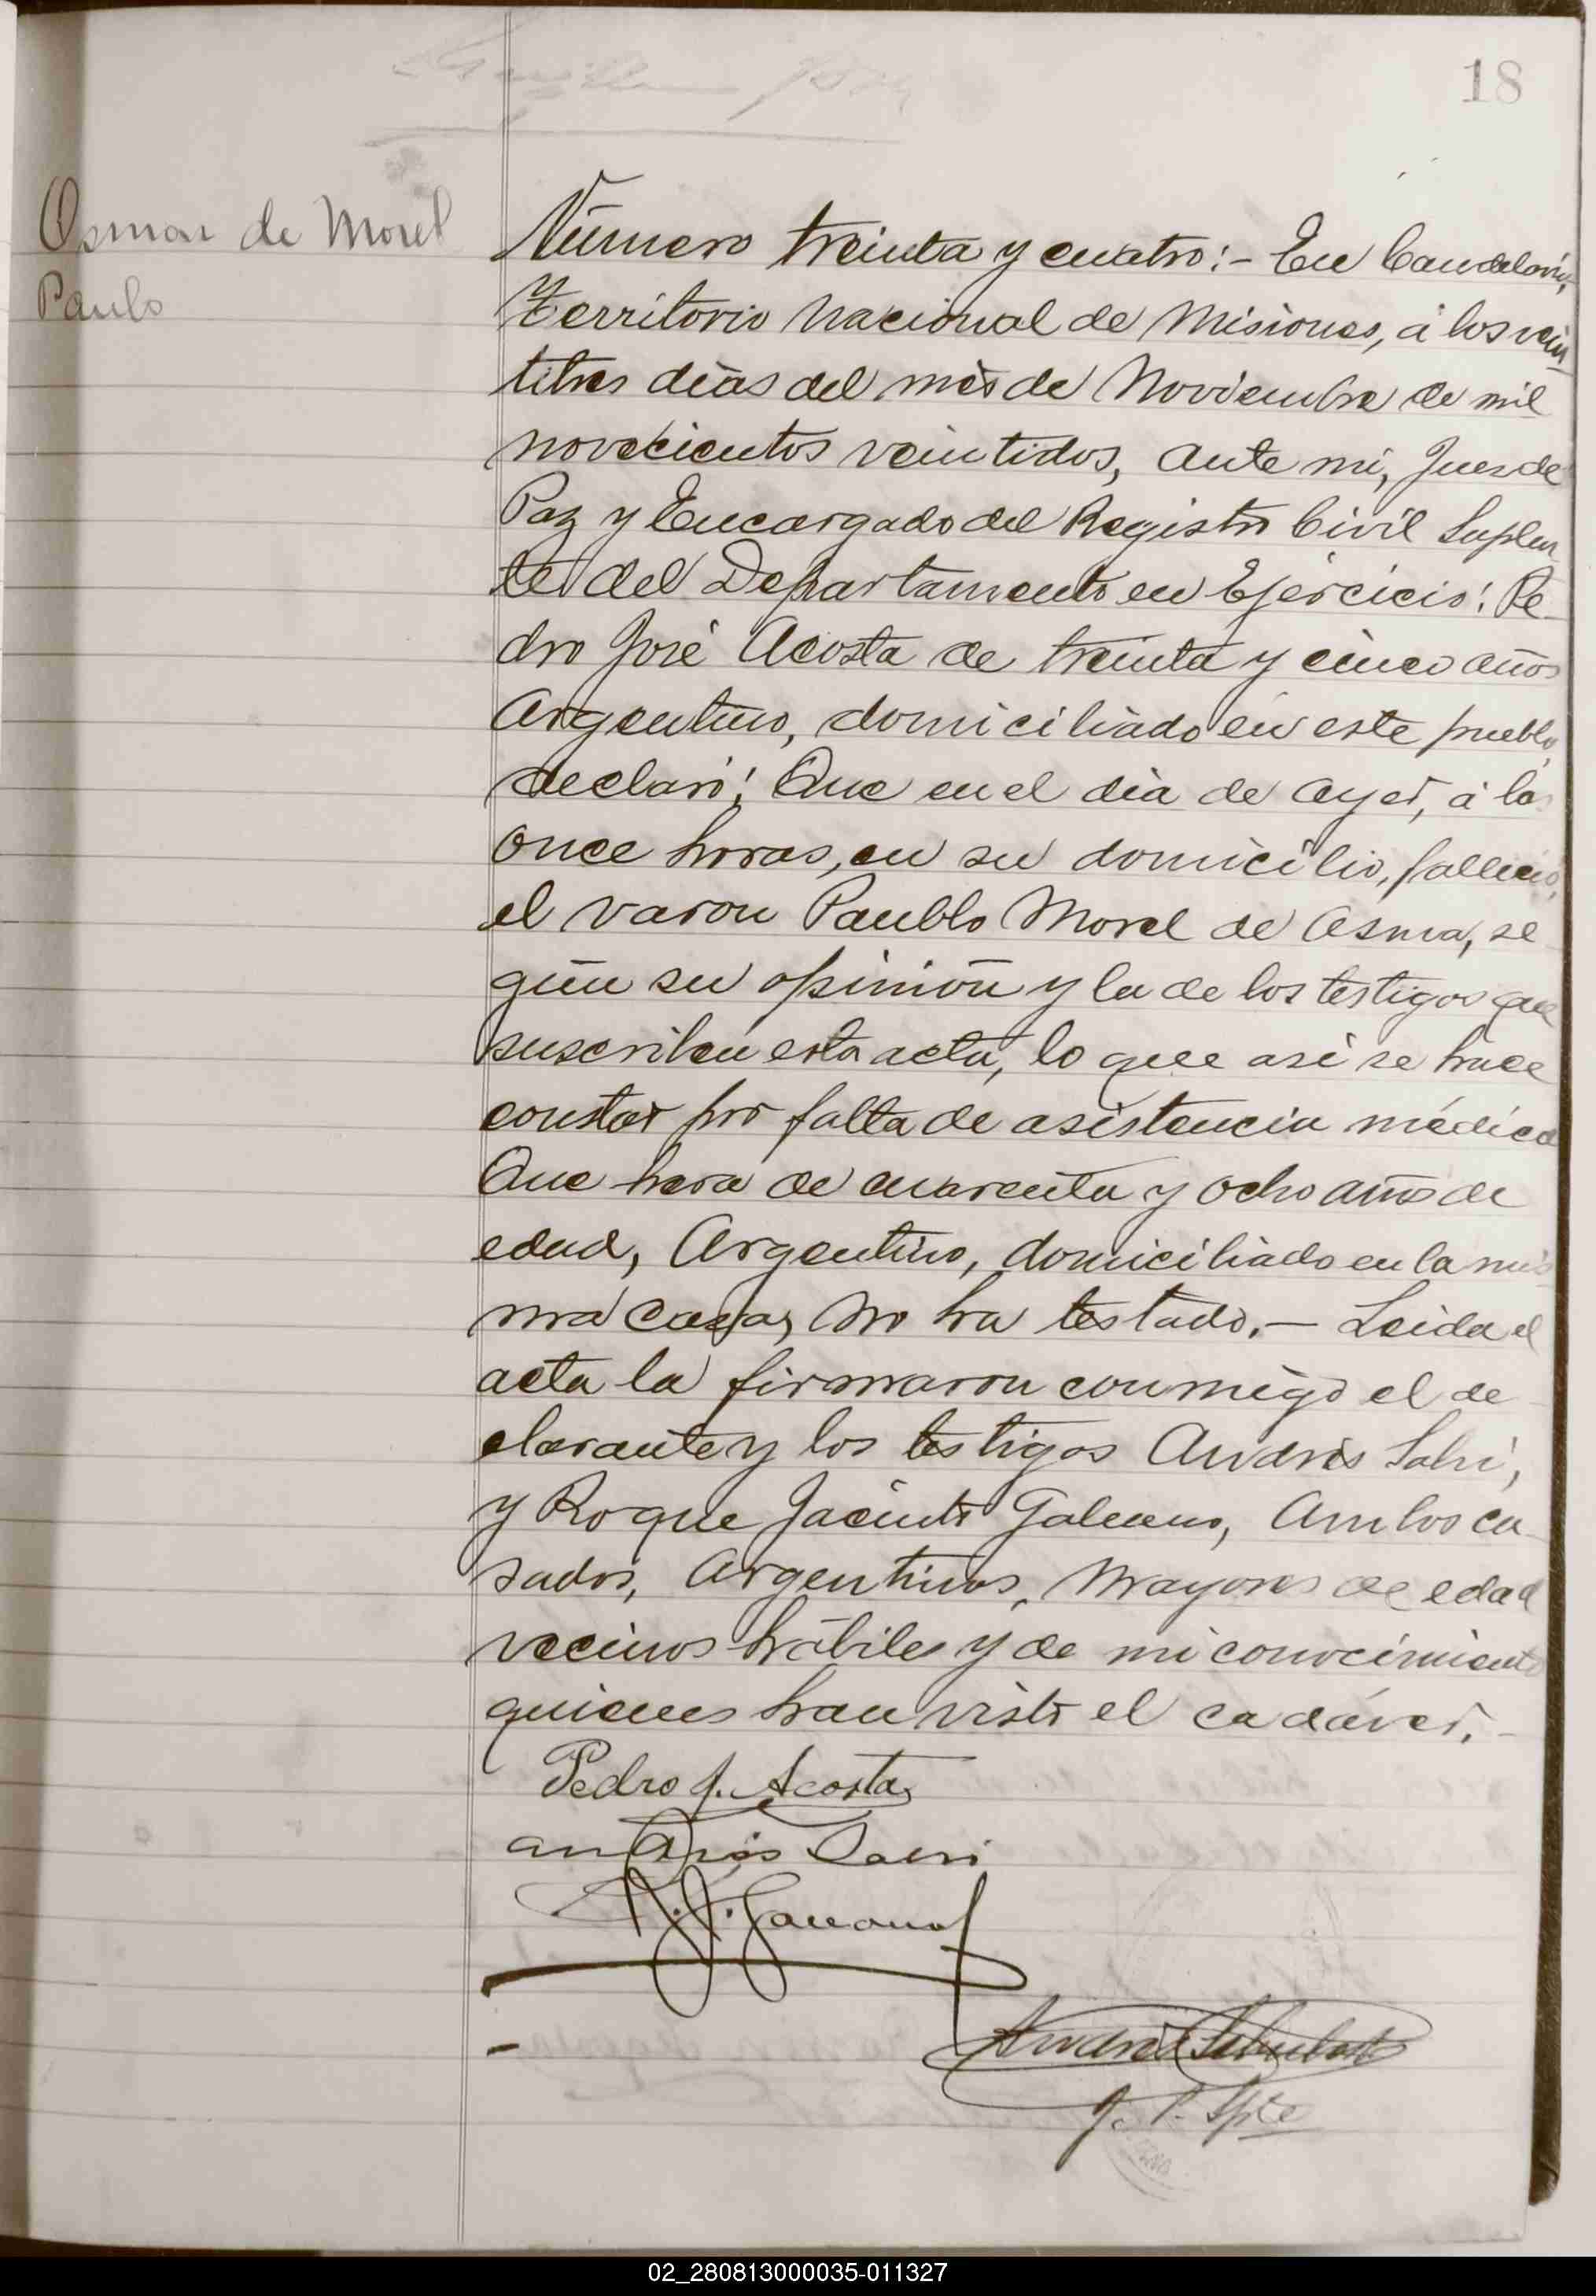 18
Osmar de Morel
Paulo
Número treinta y cuatro:- En Candelaria,
Territorio Nacional de Misiones, á los vein
titres dias del mes de Noviembre de mil
novecientos veintidos, ante mi, Juez de
Paz y Encargado del Registro Civil Suplen
te del Departamento en Ejercicio: Pe
dro José Acosta de treinta y cinco años
Argentino, domiciliado en este pueblo,
declaró: Que en el dia de ayer, á las
once horas, en su domicilio, falleció,
el varon Paublo Morel de Asma, se
gún su opinión y la de los testigos que
suscriben esta acta, lo que asi se hace
constar por falta de asistencia médica
Que hera de cuarenta y ocho años de
edad, Argentino, domiciliado en la mis
ma casa, no ha testado.- Leida el
acta la firmaron conmigo el de
clarante y los testigos Andrés Salvi,
y Roque Jacinto Galeano, Ambos ca
sados, Argentinos, Mayores de edad
vecinos hábiles y de mi conocimiento
quienes han visto el cadáver.-
Pedro J. Acosta
andrés Salvi
R. J. Galeano
J. P. Spte
02_280813000035-011327